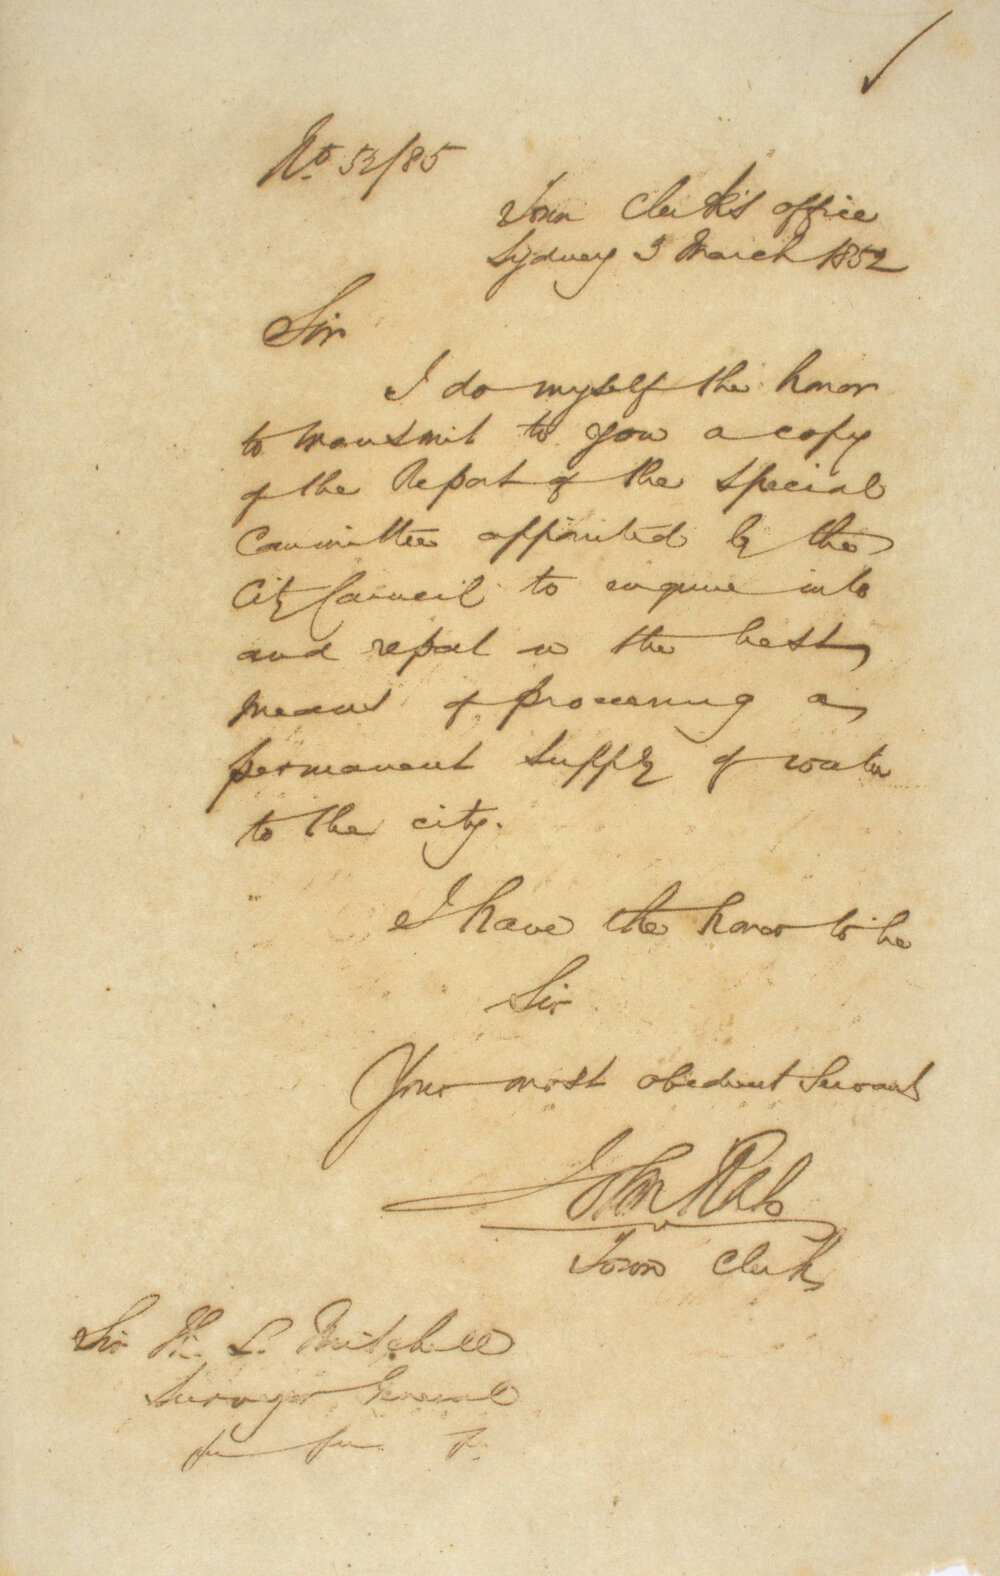 No. 52/85
Town Clerk's office
Sydney 3 March 1852
Sir
I do myself the honor
to transmit to you a copy
of the Report of the Special
Committee appointed by the
City Council to enquire into
and report on the best
means of procuring a
permanent supply of water
to the city.
I have the honor to be
Sir
Your most obedient Servant
John Rae
Town Clerk
Sir T. L. Mitchell
Surveyor General